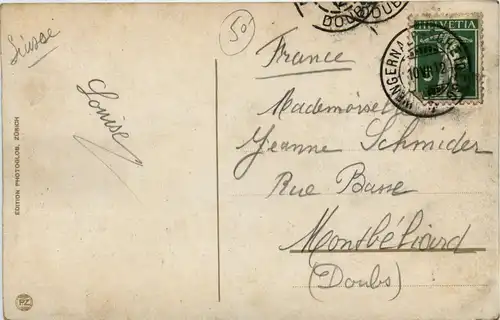 Suisse
50
DOUBS
HELVETIA
WENGERNALP
10 VII 12
5
France
Mademoisel
Jeanne Schmider
Rue Basse
Montbéliard
(Doubs)
Louise
EDITION PHOTOGLOB, ZÜRICH
PZ